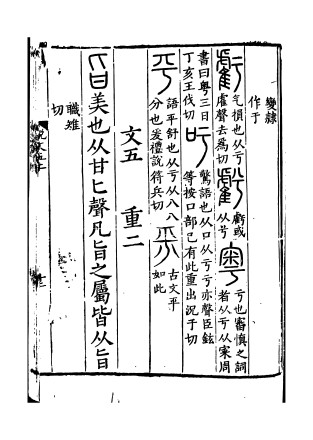 變隸
作于
虧
气損也从亏
雐聲去爲切
𧇾
虧或
从兮
粵
亏也審慎之詞
者从亏从宷周
書曰粵三日
丁亥王伐切
吁
驚語也从口从亏亏亦聲臣鉉
等按口部已有此重出況于切
平
語平舒也从亏从八八
分也爰禮說符兵切
古文平
如此
文五 重二
旨美也从甘匕聲凡旨之屬皆从旨
職雉
切